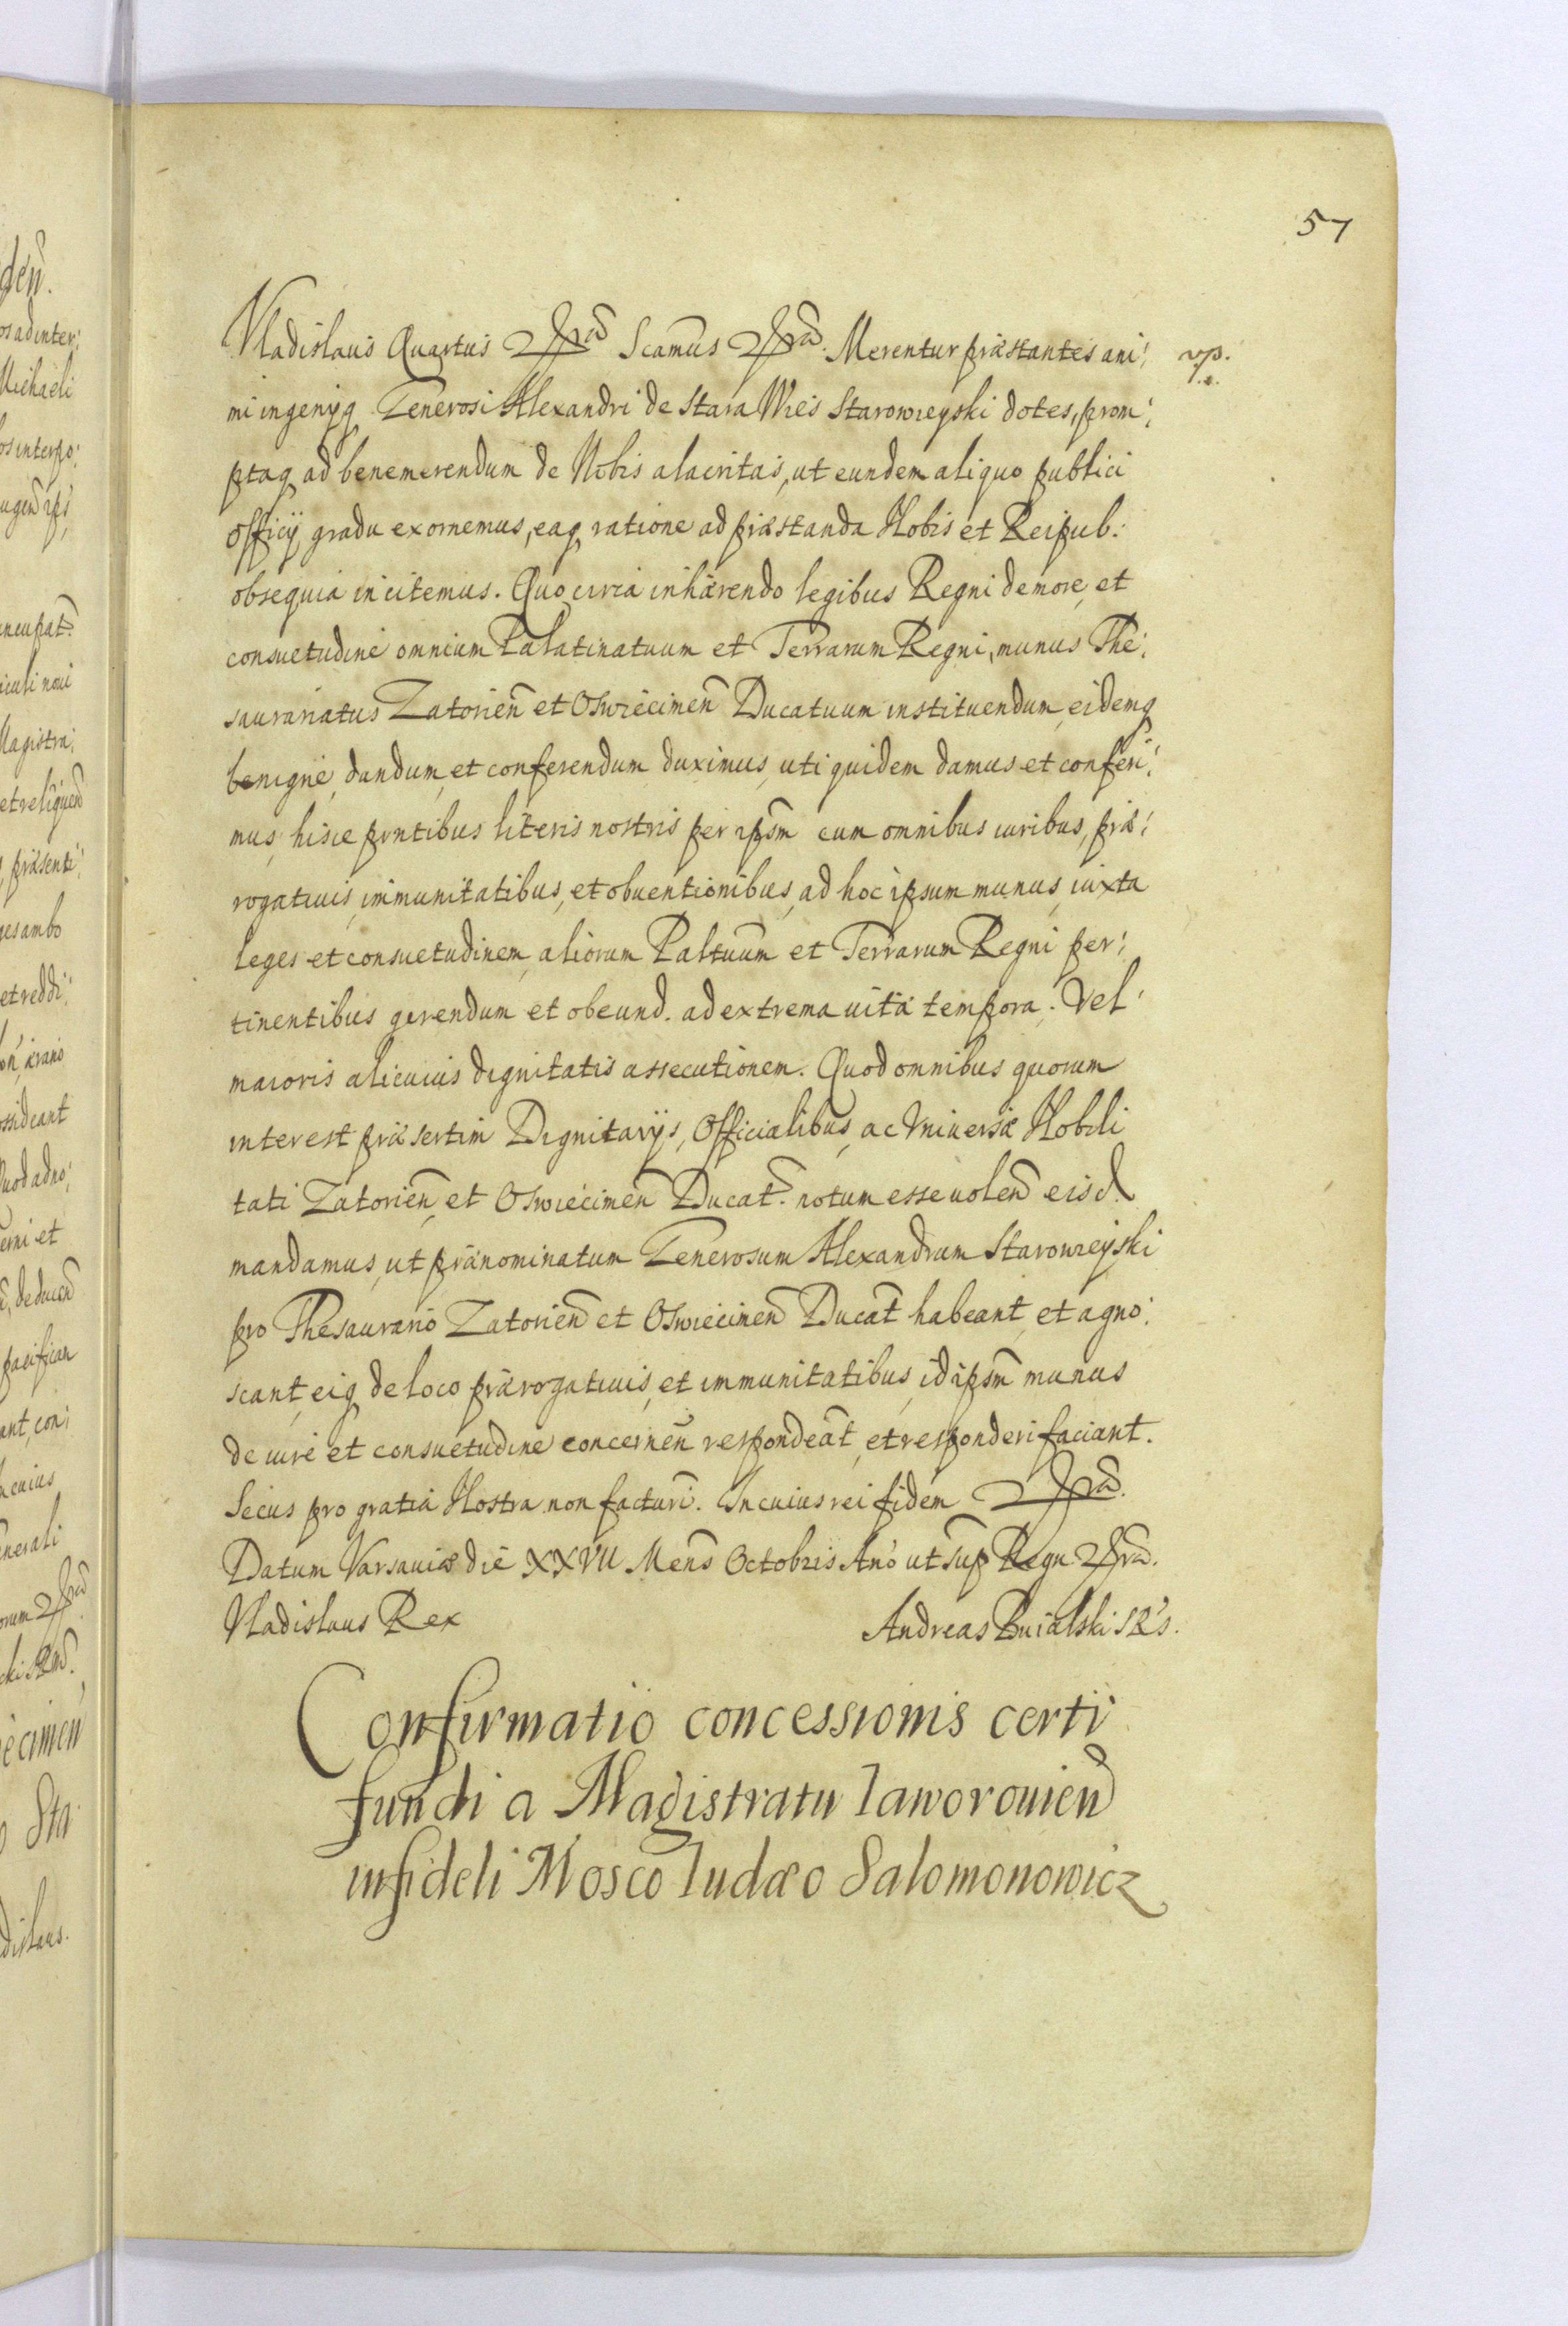 57
Vladislaus Quartus etc Scamus etc. Merentur præstantes ani:
mi ingenijq Generosi Alexandri de Stara Wies Starowieyski dotes, prom:
ptaq ad benemerendum de Nobis alacritas, ut eundem aliquo publici
officij gradu exornemus, eaq ratione ad præstanda Nobis et Reipub:
obsequia incitemus. Quocirca inhærendo legibus Regni de more, et
consuetudine omnium Palatinatuum et Terrarum Regni, munus The:
saurariatus Zatorień et Oswiecimeń Ducatuum instituendum, eidemq
benigne, dandum, et conferendum duximus, uti quidem damus et conferi:
mus, hisce pntibus literis nostris per ipsm cum omnibus iuribus, præ:
rogatiuis, immunitatibus, et obuentionibus, ad hoc ipsum munus, iuxta
leges et consuetudinem, aliorum Paltuum et Terrarum Regni per:
tinentibus gerendum et obeund. ad extrema uitæ tempora. Vel
maioris alicuius dignitatis assecutionem. Quod omnibus quorum
interest præsertim Dignitarijs, Officialibus, ac Vniuersæ Nobili
tati Zatorień, et Oswiecimeń Ducat. notum esse uoleń eisd
mandamus, ut prænominatum Generosum Alexandrum Starowieyski
pro Thesaurario Zatorień et Oswiecimeń Ducat habeant, et agno:
scant, eiq de loco prærogatiuis, et immunitatibus, id ipsm munus
de iure et consuetudine concerneń respondeāt, et responderi faciant.
Secus pro gratia Nostra non facturi. In cuius rei fidem etc.
Datum Varsauiæ die XXVII Mens Octobris Ano ut sup Regn etc.
Vladislaus Rex
Andreas Buialski SRs.
Confirmatio concessionis certi
fundi a Magistratu Iaworouień
infideli Mosco Iudæo Salomonowicz